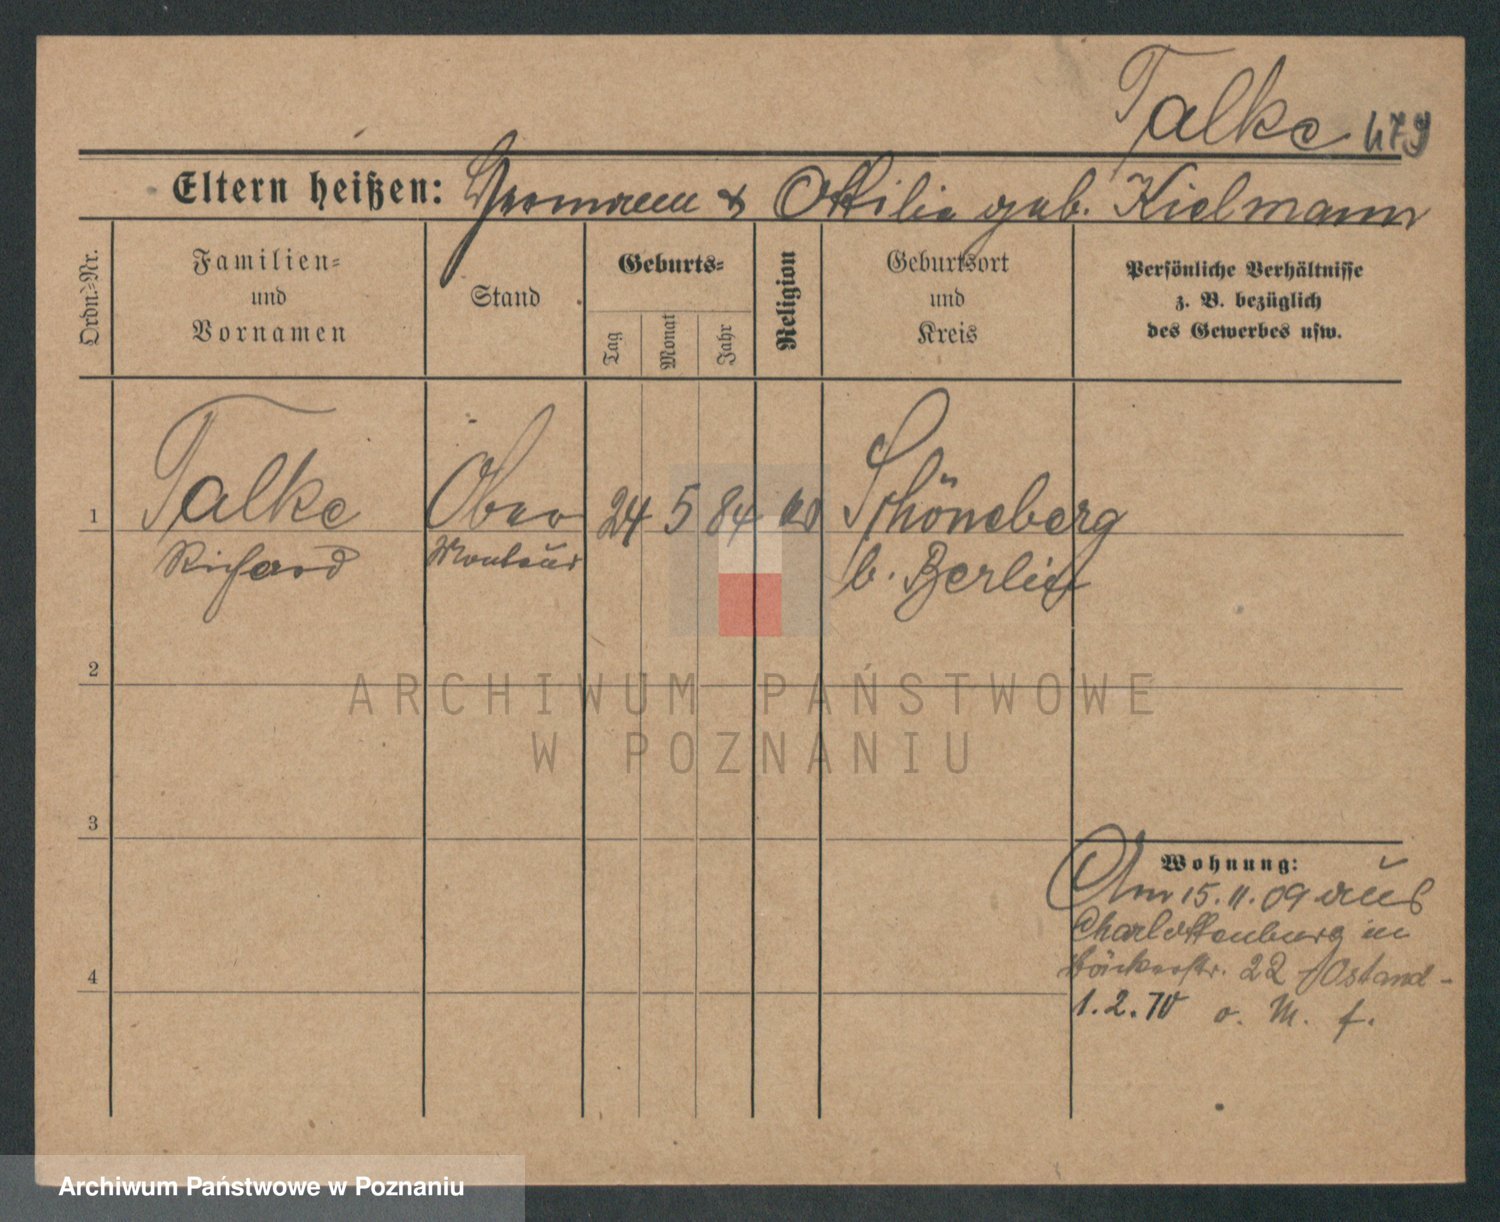 Talke 479
Eltern heißen: Hermann & Ottilie geb. Kielmann
Ordn.-Nr.
Familien-
und
Vornamen
Stand
Geburts-
Tag
Monat
Jahr
Religion
Geburtsort
und
Kreis
Persönliche Verhältnisse
z. B. bezüglich
des Gewerbes usw.
1
Talke
Richard
Ober
Monteur
24 5 84
Schöneberg
b. Berlin
2
3
4
Wohnung:
Am 15.11.09 aus
Charlottenburg in
22 Ostand-
1.2.10 o. M. f.
ARCHIWUM PAŃSTWOWE
W POZNANIU
Archiwum Państwowe w Poznaniu